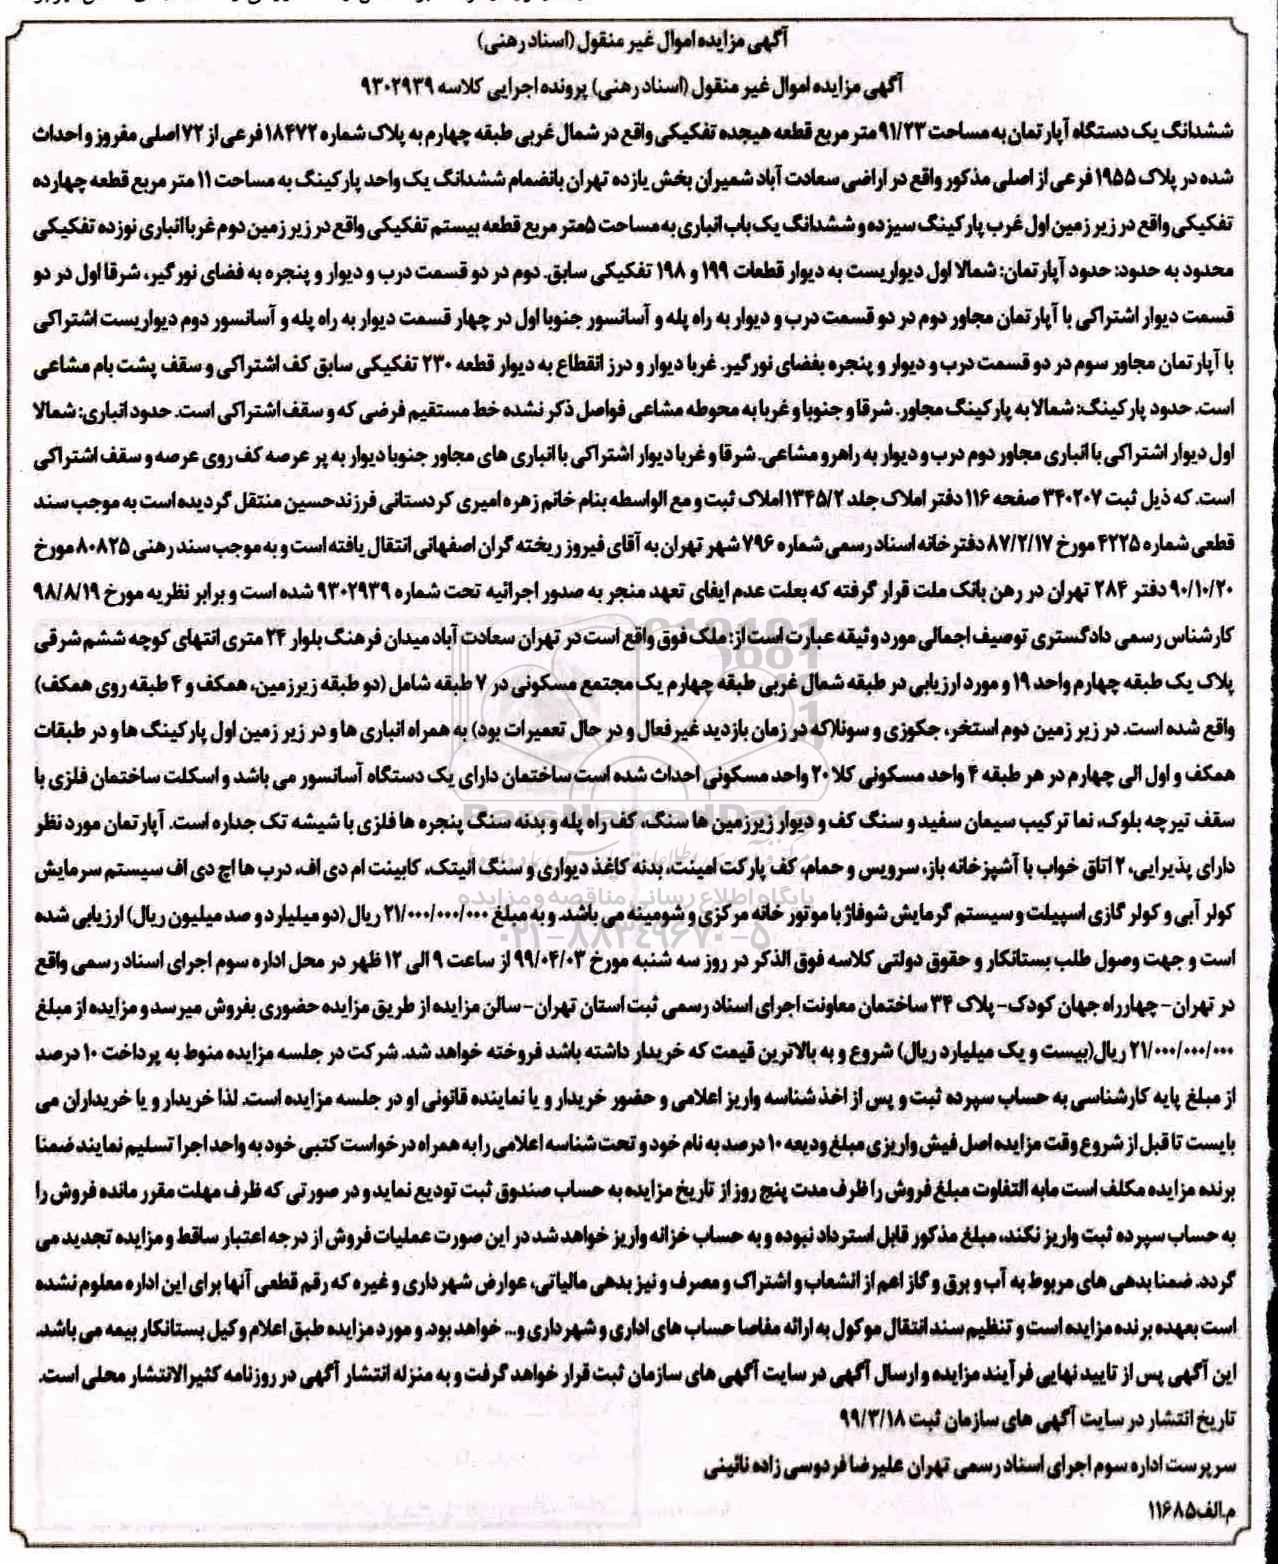 آگهی مزایده اموال غیر منقول (اسناد رهنی)
آگهی مزایده اموال غیر منقول (اسناد رهنی) پرونده اجرایی کلاسه ۹۳۰۲۹۳۹
ششدانگ یک دستگاه آپارتمان به مساحت ۹۱/۲۳ متر مربع قطعه هیجده تفکیکی واقع در شمال غربی طبقه چهارم به پلاک شماره ۱۸۴۷۲ فرعی از ۷۲ اصلی مفروز و احداث
شده در پلاک ۱۹۵۵ فرعی از اصلی مذکور واقع در اراضی سعادت آباد شمیران بخش یازده تهران بانضمام ششدانگ یک واحد پارکینگ به مساحت ۱۱ متر مربع قطعه چهارده
تفکیکی واقع در زیر زمین اول غرب پارکینگ سیزده و ششدانگ یک باب انباری به مساحت ۵متر مربع قطعه بیستم تفکیکی واقع در زیر زمین دوم غربا انباری نوزده تفکیکی
محدود به حدود: حدود آپارتمان: شمالا اول دیواریست به دیوار قطعات ۱۹۹ و ۱۹۸ تفکیکی سابق. دوم در دو قسمت درب و دیوار و پنجره به فضای نورگیر، شرقا اول در دو
قسمت دیوار اشتراکی با آپارتمان مجاور دوم در دو قسمت درب و دیوار به راه پله و آسانسور جنوبا اول در چهار قسمت دیوار به راه پله و آسانسور دوم دیواریست اشتراکی
با آپارتمان مجاور سوم در دو قسمت درب و دیوار و پنجره بفضای نورگیر. غربا دیوار و درز انقطاع به دیوار قطعه ۲۳۰ تفکیکی سابق کف اشتراکی و سقف پشت بام مشاعی
است. حدود پارکینگ: شمالا به پارکینگ مجاور. شرقا و جنوبا و غربا به محوطه مشاعی فواصل ذکر نشده خط مستقیم فرضی که و سقف اشتراکی است. حدود انباری: شمالا
اول دیوار اشتراکی با انباری مجاور دوم درب و دیوار به راهرو مشاعی. شرقا و غربا دیوار اشتراکی با انباری های مجاور جنوبا دیوار به پر عرصه کف روی عرصه و سقف اشتراکی
است. که ذیل ثبت ۳۴۰۲۰۷ صفحه ۱۱۶ دفتر املاک جلد ۱۳۴۵/۲ املاک ثبت و مع الواسطه بنام خانم زهره امیری کردستانی فرزندحسین منتقل گردیده است به موجب سند
قطعی شماره ۴۲۲۵ مورخ ۸۷/۲/۱۷ دفترخانه اسناد رسمی شماره ۷۹۶ شهر تهران به آقای فیروز ریخته گران اصفهانی انتقال یافته است و به موجب سند رهنی ۸۰۸۲۵ مورخ
۹۰/۱۰/۲۰ دفتر ۲۸۴ تهران در رهن بانک ملت قرار گرفته که بعلت عدم ایفای تعهد منجر به صدور اجرائیه تحت شماره ۹۳۰۲۹۳۹ شده است و برابر نظریه مورخ ۹۸/۸/۱۹
کارشناس رسمی دادگستری توصیف اجمالی مورد وثیقه عبارت است از: ملک فوق واقع است در تهران سعادت آباد میدان فرهنگ بلوار ۲۴ متری انتهای کوچه ششم شرقی
پلاک یک طبقه چهارم واحد ۱۹ و مورد ارزیابی در طبقه شمال غربی طبقه چهارم یک مجتمع مسکونی در ۷ طبقه شامل (دو طبقه زیرزمین، همکف و ۴ طبقه روی همکف)
واقع شده است. در زیر زمین دوم استخر، جکوزی و سونا(که در زمان بازدید غیرفعال و در حال تعمیرات بود) به همراه انباری ها و در زیر زمین اول پارکینگ ها و در طبقات
همکف و اول الی چهارم در هر طبقه ۴ واحد مسکونی کلا ۲۰ واحد مسکونی احداث شده است ساختمان دارای یک دستگاه آسانسور می باشد و اسکلت ساختمان فلزی با
سقف تیرچه بلوک، نما ترکیب سیمان سفید و سنگ کف و دیوار زیرزمین ها سنگ، کف راه پله و بدنه سنگ پنجره ها فلزی با شیشه تک جداره است. آپارتمان مورد نظر
دارای پذیرایی، ۲ اتاق خواب با آشپزخانه باز، سرویس و حمام، کف پارکت امینت، بدنه کاغذ دیواری و سنگ آنتیک، کابینت ام دی اف، درب ها اچ دی اف سیستم سرمایش
کولر آبی و کولر گازی اسپیلت و سیستم گرمایش شوفاژ با موتور خانه مرکزی و شومینه می باشد. و به مبلغ ۲۱/۰۰۰/۰۰۰/۰۰۰ ریال (دو میلیارد و صد میلیون ریال) ارزیابی شده
است و جهت وصول طلب بستانکار و حقوق دولتی کلاسه فوق الذکر در روز سه شنبه مورخ ۹۹/۰۴/۰۳ از ساعت ۹ الی ۱۲ ظهر در محل اداره سوم اجرای اسناد رسمی واقع
در تهران- چهارراه جهان کودک- پلاک ۳۴ ساختمان معاونت اجرای اسناد رسمی ثبت استان تهران- سالن مزایده از طریق مزایده حضوری بفروش میرسد و مزایده از مبلغ
۲۱/۰۰۰/۰۰۰/۰۰۰ ریال(بیست و یک میلیارد ریال) شروع و به بالاترین قیمت که خریدار داشته باشد فروخته خواهد شد. شرکت در جلسه مزایده منوط به پرداخت ۱۰ درصد
از مبلغ پایه کارشناسی به حساب سپرده ثبت و پس از اخذ شناسه واریز اعلامی و حضور خریدار و یا نماینده قانونی او در جلسه مزایده است. لذا خریدار و یا خریداران می
بایست تا قبل از شروع وقت مزایده اصل فیش واریزی مبلغ ودیعه ۱۰ درصد به نام خود و تحت شناسه اعلامی را به همراه درخواست کتبی خود به واحد اجرا تسلیم نمایند ضمنا
برنده مزایده مکلف است مابه التفاوت مبلغ فروش را ظرف مدت پنج روز از تاریخ مزایده به حساب صندوق ثبت تودیع نماید و در صورتی که ظرف مهلت مقرر مانده فروش را
به حساب سپرده ثبت واریز نکند، مبلغ مذکور قابل استرداد نبوده و به حساب خزانه واریز خواهد شد در این صورت عملیات فروش از درجه اعتبار ساقط و مزایده تجدید می
گردد. ضمنا بدهی های مربوط به آب و برق و گاز اعم از انشعاب و اشتراک و مصرف و نیز بدهی مالیاتی، عوارض شهرداری و غیره که رقم قطعی آنها برای این اداره معلوم نشده
است بعهده برنده مزایده است و تنظیم سند انتقال موکول به ارائه مفاصا حساب های اداری و شهرداری و... خواهد بود. و مورد مزایده طبق اعلام وکیل بستانکار بیمه می باشد.
این آگهی پس از تایید نهایی فرآیند مزایده و ارسال آگهی در سایت آگهی های سازمان ثبت قرار خواهد گرفت و به منزله انتشار آگهی در روزنامه کثیرالانتشار محلی است.
تاریخ انتشار در سایت آگهی های سازمان ثبت ۹۹/۳/۱۸
سرپرست اداره سوم اجرای اسناد رسمی تهران علیرضا فردوسی زاده نائینی
م.الف۱۱۶۸۵
ParsNamadData
پایگاه اطلاع رسانی مناقصه و مزایده
۰۲۱-۸۸۳۴۹۶۷۰-۵